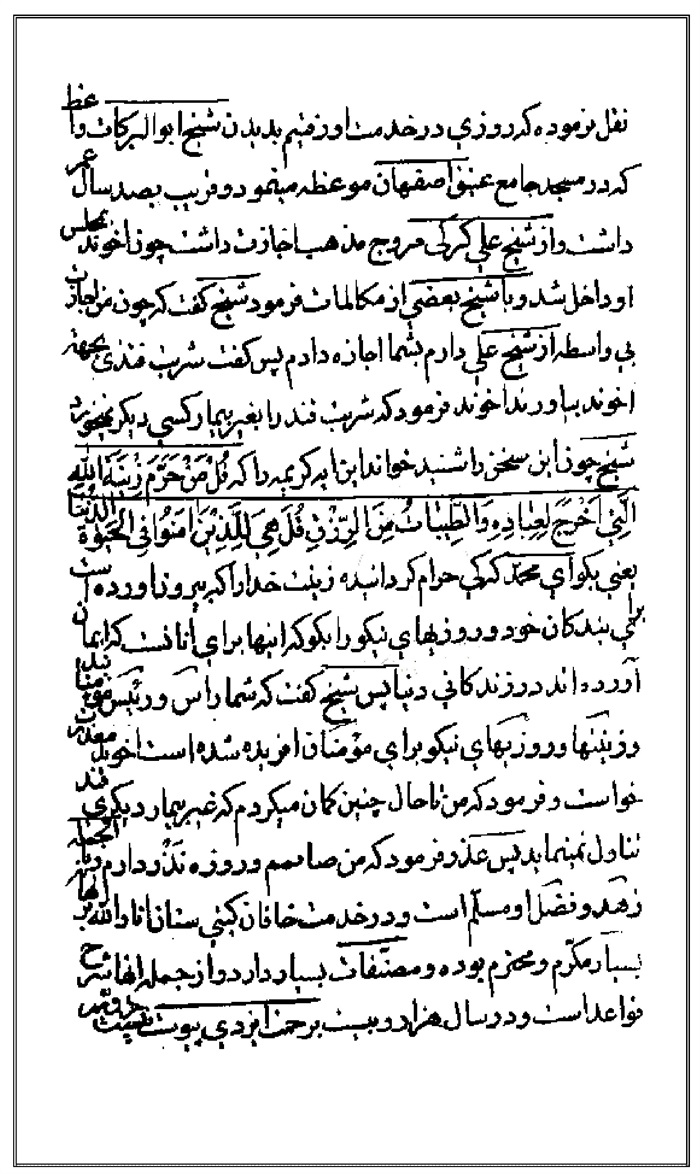 نقل نرموده که روزي در خدمت او رفتیم بدیدن شیخ ابوالبرکات واعظ
که در مسجد جامع عتیق اصفهان موعظه مینمود و قریب بصد سال عمر
داشت و از شیخ علي کرکي مروج مذهب اجازت داشت چون اخوند بمجلس
او داخل شد و با شیخ بعضي از مکالمات فرمود شیخ گفت که چون من اجازت
بي واسطه از شیخ علي دارم بشما اجازه دادم پس گفت شربت قندي بجهة
اخوند بیاورند اخوند فرمود که شربت قند را بغیر بیمار کسي دیکر نمیخورد
شیخ چون این سخن را شنید خواند این ایه کریمه را که قُلْ مَنْ حَرَّمَ زِینَةَ اللهِ
الَّتِي اَخْرَجَ لِعِبادِهِ وَالطَّیِّباتِ مِنَ الرِّزْقِ قُلْ هِيَ لِلَّذِینَ امَنُوا فِي الْحَیوةِ الدُّنْیا
یعني بکو اي محمد که کي حرام کردانیده زینت خدا را که بیرون اورده است
براي بندکان خود و روزیهاي نیکو را بکو که اینها براي آنانست که ایمان
آورده اند در زندکاني دنیا پس شیخ گفت که شما راس و رئیس مؤمنانید
و زینتها و روزیهاي نیکو براي مؤمنان افریده شده است اخوند معذرت
خواست و فرمود که من تا حال چنین کمان میکردم که غیر بیمار دیکري قند
تناول نمینماید پس عذر فرمود که من صایمم و روزه نذر دارم وبالجمله
زهد و فضل او مسلّم است و در خدمت خاقان کیتي ستان انار الله برهانه
بسیار مکرّم و محترم بوده و مصنّفات بسیار دارد و از جمله انها شرح
قواعد است و در سال هزار و بیست برحمت ایزدي پیوست